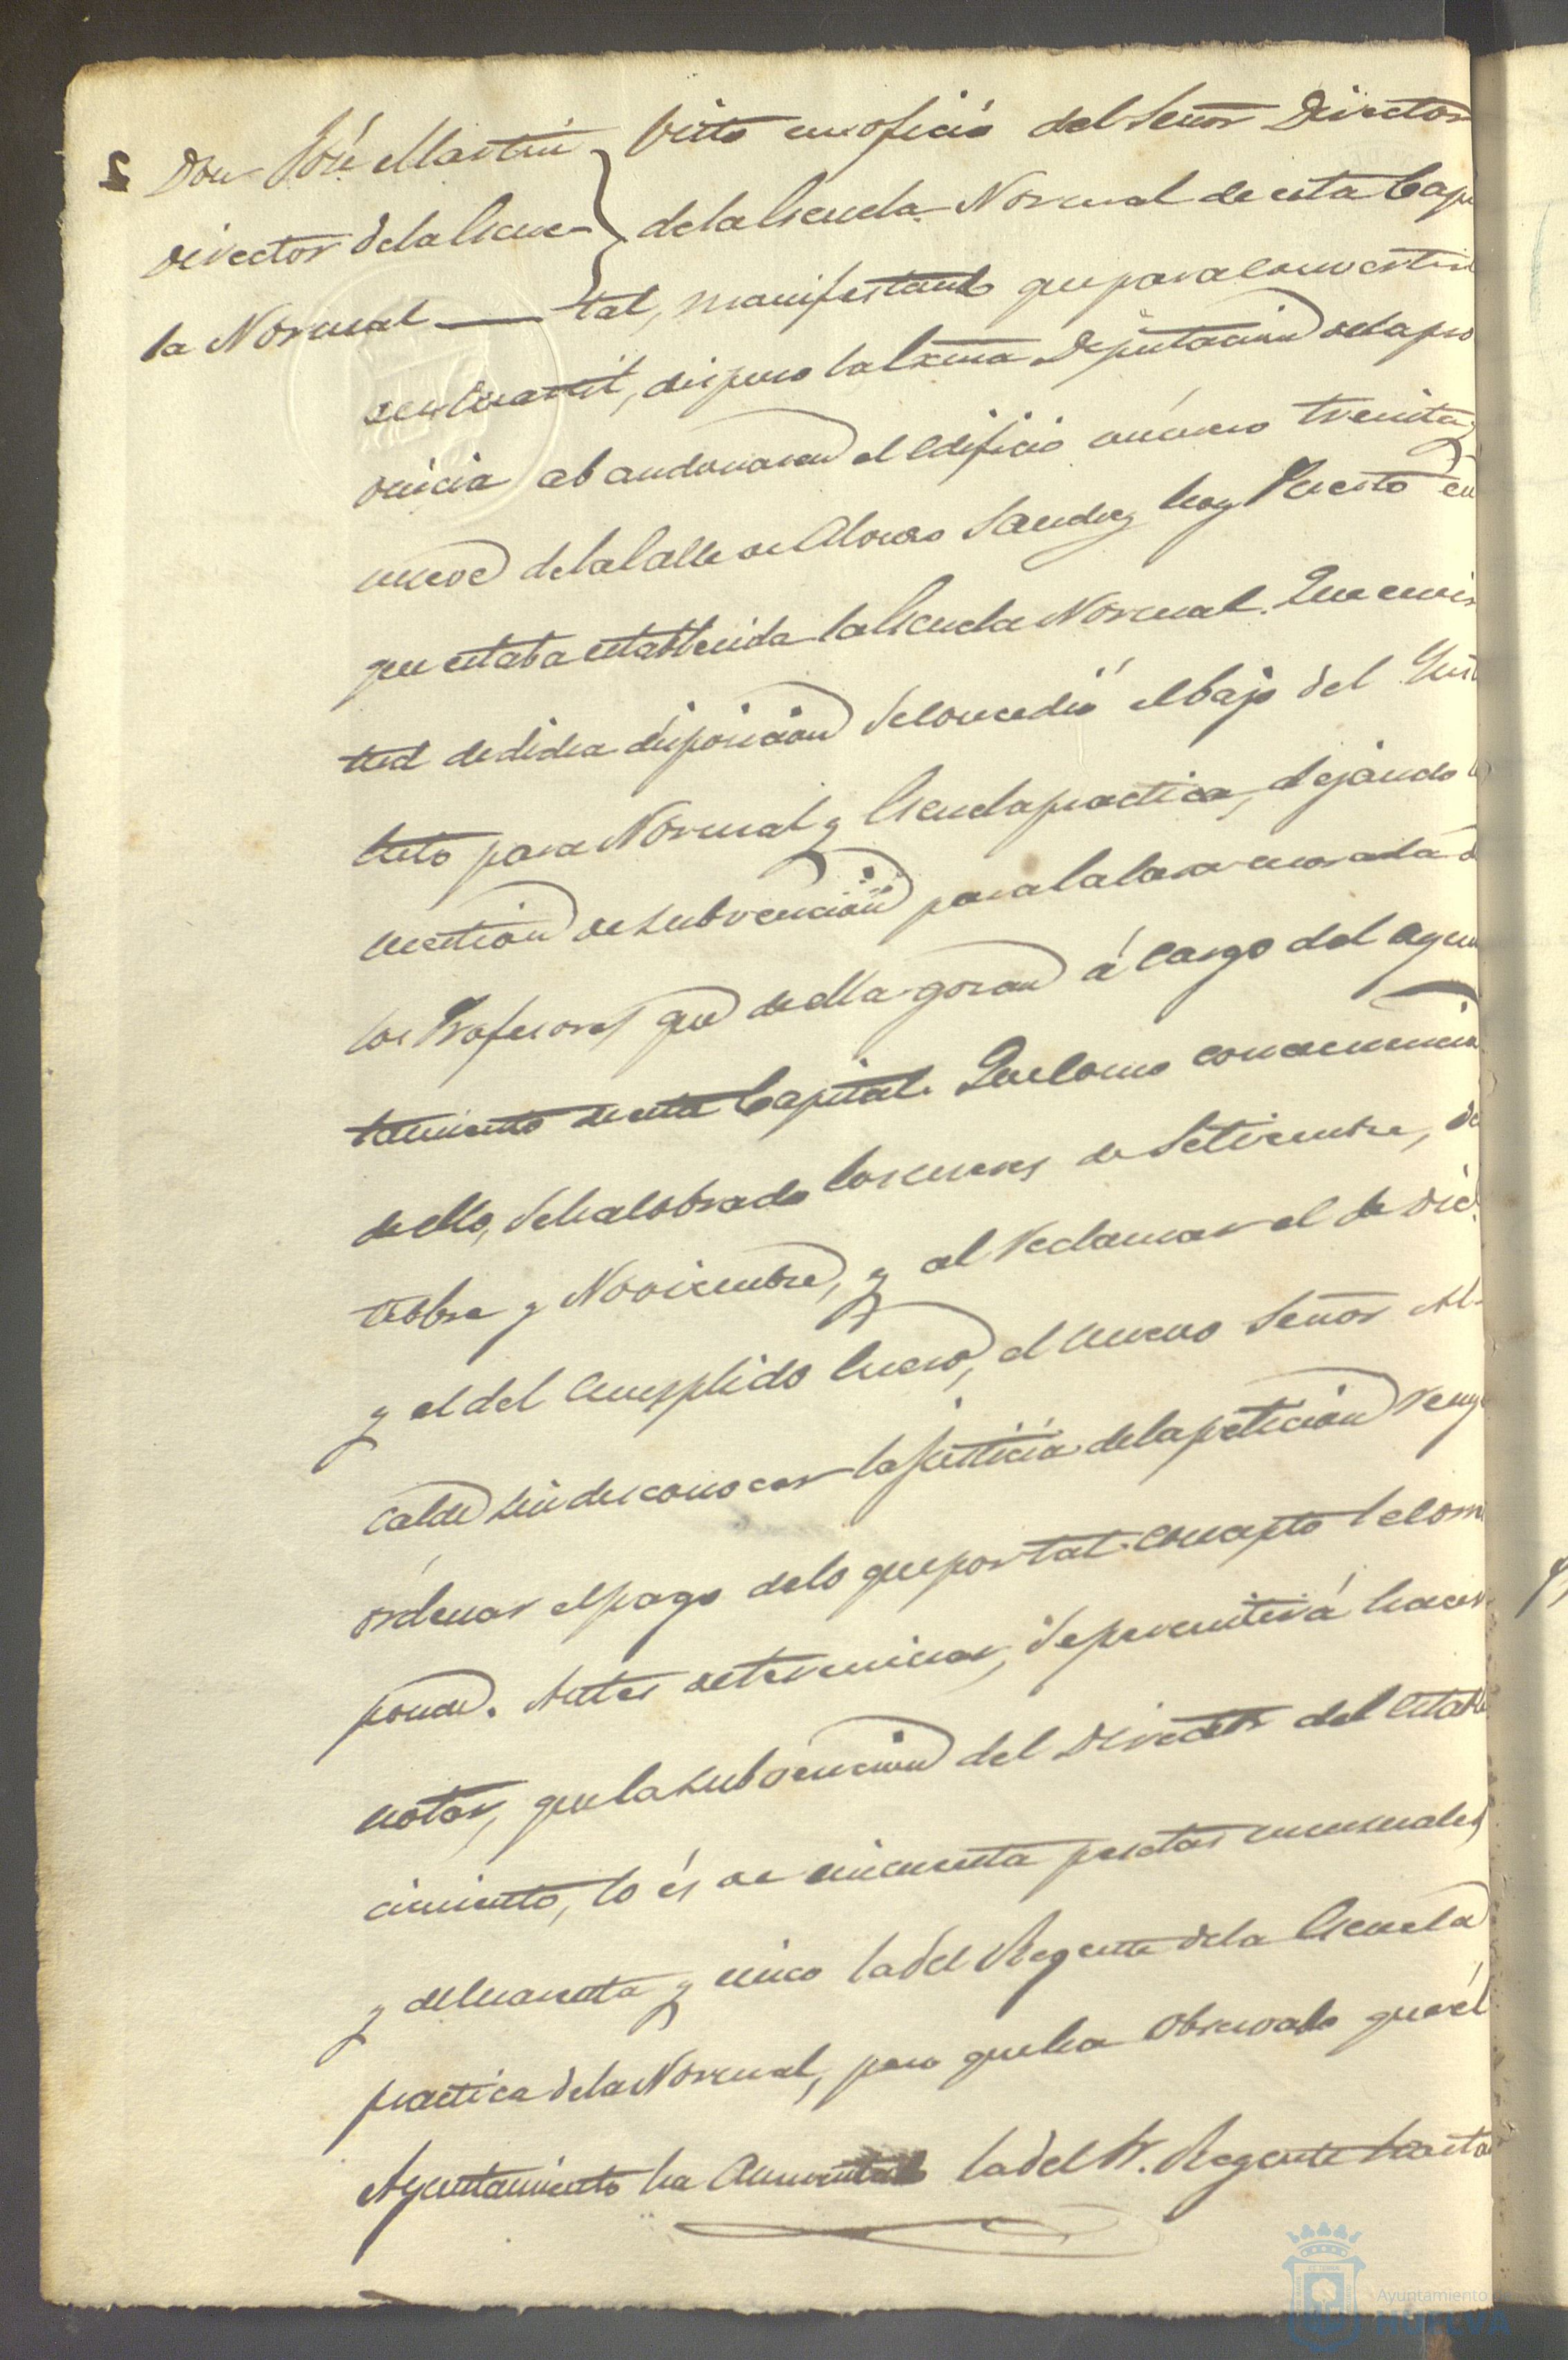 2 Don José Martin
Director de la Escue-
la Normal
Visto un oficio del Señor Director
de la Escuela Normal de esta Capi
tal, manifestando que para convertir
se en Cuartel, dispuso la Excma Diputacion de la pro
vincia abandonaran el edificio número treinta y
nueve de la Calle de Alonso Sanchez hoy Puerto en
que estaba establecida la Escuela Normal. Que en vir
tud de dicha disposicion se concedió el bajo del Insti
tuto para Normal y Escuela practica, dejando
cuestion de subvencion para la Casa morada de
los Profesores que de ella gozan á cargo del Ayun
tamiento de esta Capital. Que como consecuencia
de ello, se ha cobrado los meses de Setiembre, Oc
tubre y Noviembre, y al reclamar el de Dic.
y el del cumplido Enero, el nuevo Señor Al-
calde sin desconocer la justicia de la peticion
ordenar el pago de lo que por tal concepto le corres
ponde. Antes de terminar, se permitirá hacer
notar, que la subvencion del Director del Estable
cimiento, lo és de cincuenta pesetas mensuales
y de cuarenta y cinco la del Regente de la Escuela
practica de la Normal, pero que ha observado que él
Ayuntamiento ha aumentado la del Sr. Regente hasta
Ayuntamiento de
HUELVA